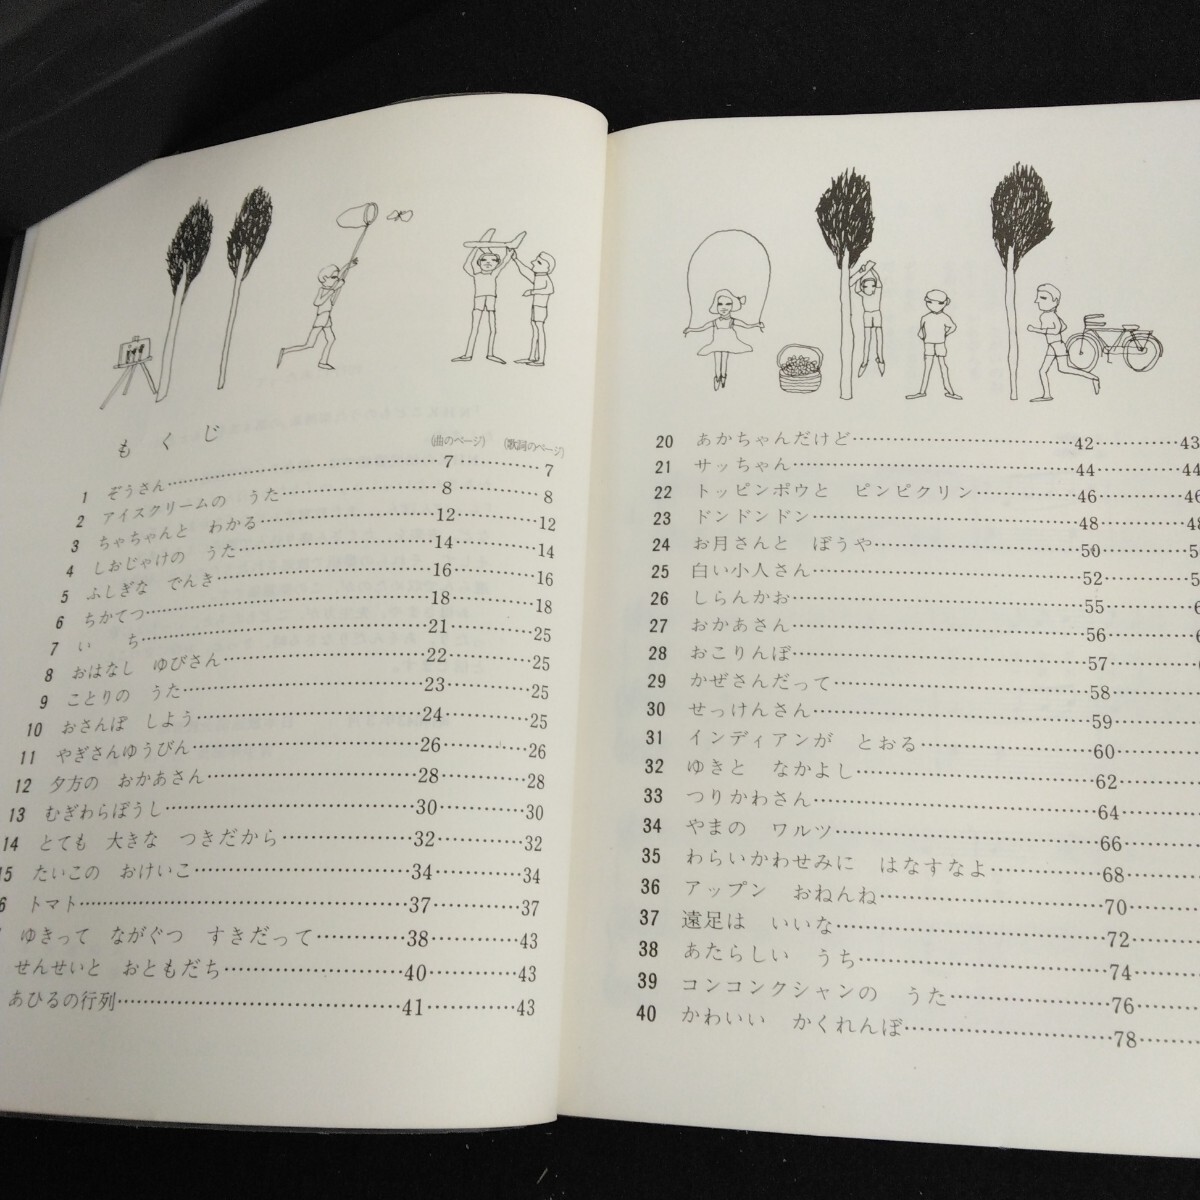 もくじ
(曲のページ) (歌詞のページ)
1 ぞうさん 7 7
2 アイスクリームの うた 8 8
3 ちゃちゃんと わかる 12 12
4 しおじゃけの うた 14 14
5 ふしぎな でんき 16 16
6 ちかてつ 18 18
7 い ち 21 25
8 おはなし ゆびさん 22 25
9 ことりの うた 23 25
10 おさんぽ しよう 24 25
11 やぎさんゆうびん 26 26
12 夕方の おかあさん 28 28
13 むぎわらぼうし 30 30
14 とても 大きな つきだから 32 32
15 たいこの おけいこ 34 34
6 トマト 37 37
ゆきって ながぐつ すきだって 38 43
せんせいと おともだち 40 43
あひるの行列 41 43
20 あかちゃんだけど 42 43
21 サッちゃん 44 44
22 トッピンポウと ピンピクリン 46 46
23 ドンドンドン 48 48
24 お月さんと ぼうや 50 5
25 白い小人さん 52 5
26 しらんかお 55 6
27 おかあさん 56 6
28 おこりんぼ 57
29 かぜさんだって 58
30 せっけんさん 59
31 インディアンが とおる 60
32 ゆきと なかよし 62
33 つりかわさん 64
34 やまの ワルツ 66
35 わらいかわせみに はなすなよ 68
36 アップン おねんね 70
37 遠足は いいな 72
38 あたらしい うち 74
39 コンコンクシャンの うた 76
40 かわいい かくれんぼ 78